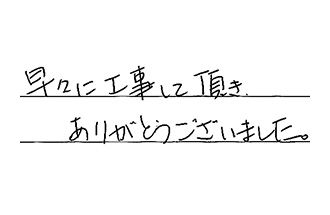 早々に工事して頂き
ありがとうございました。